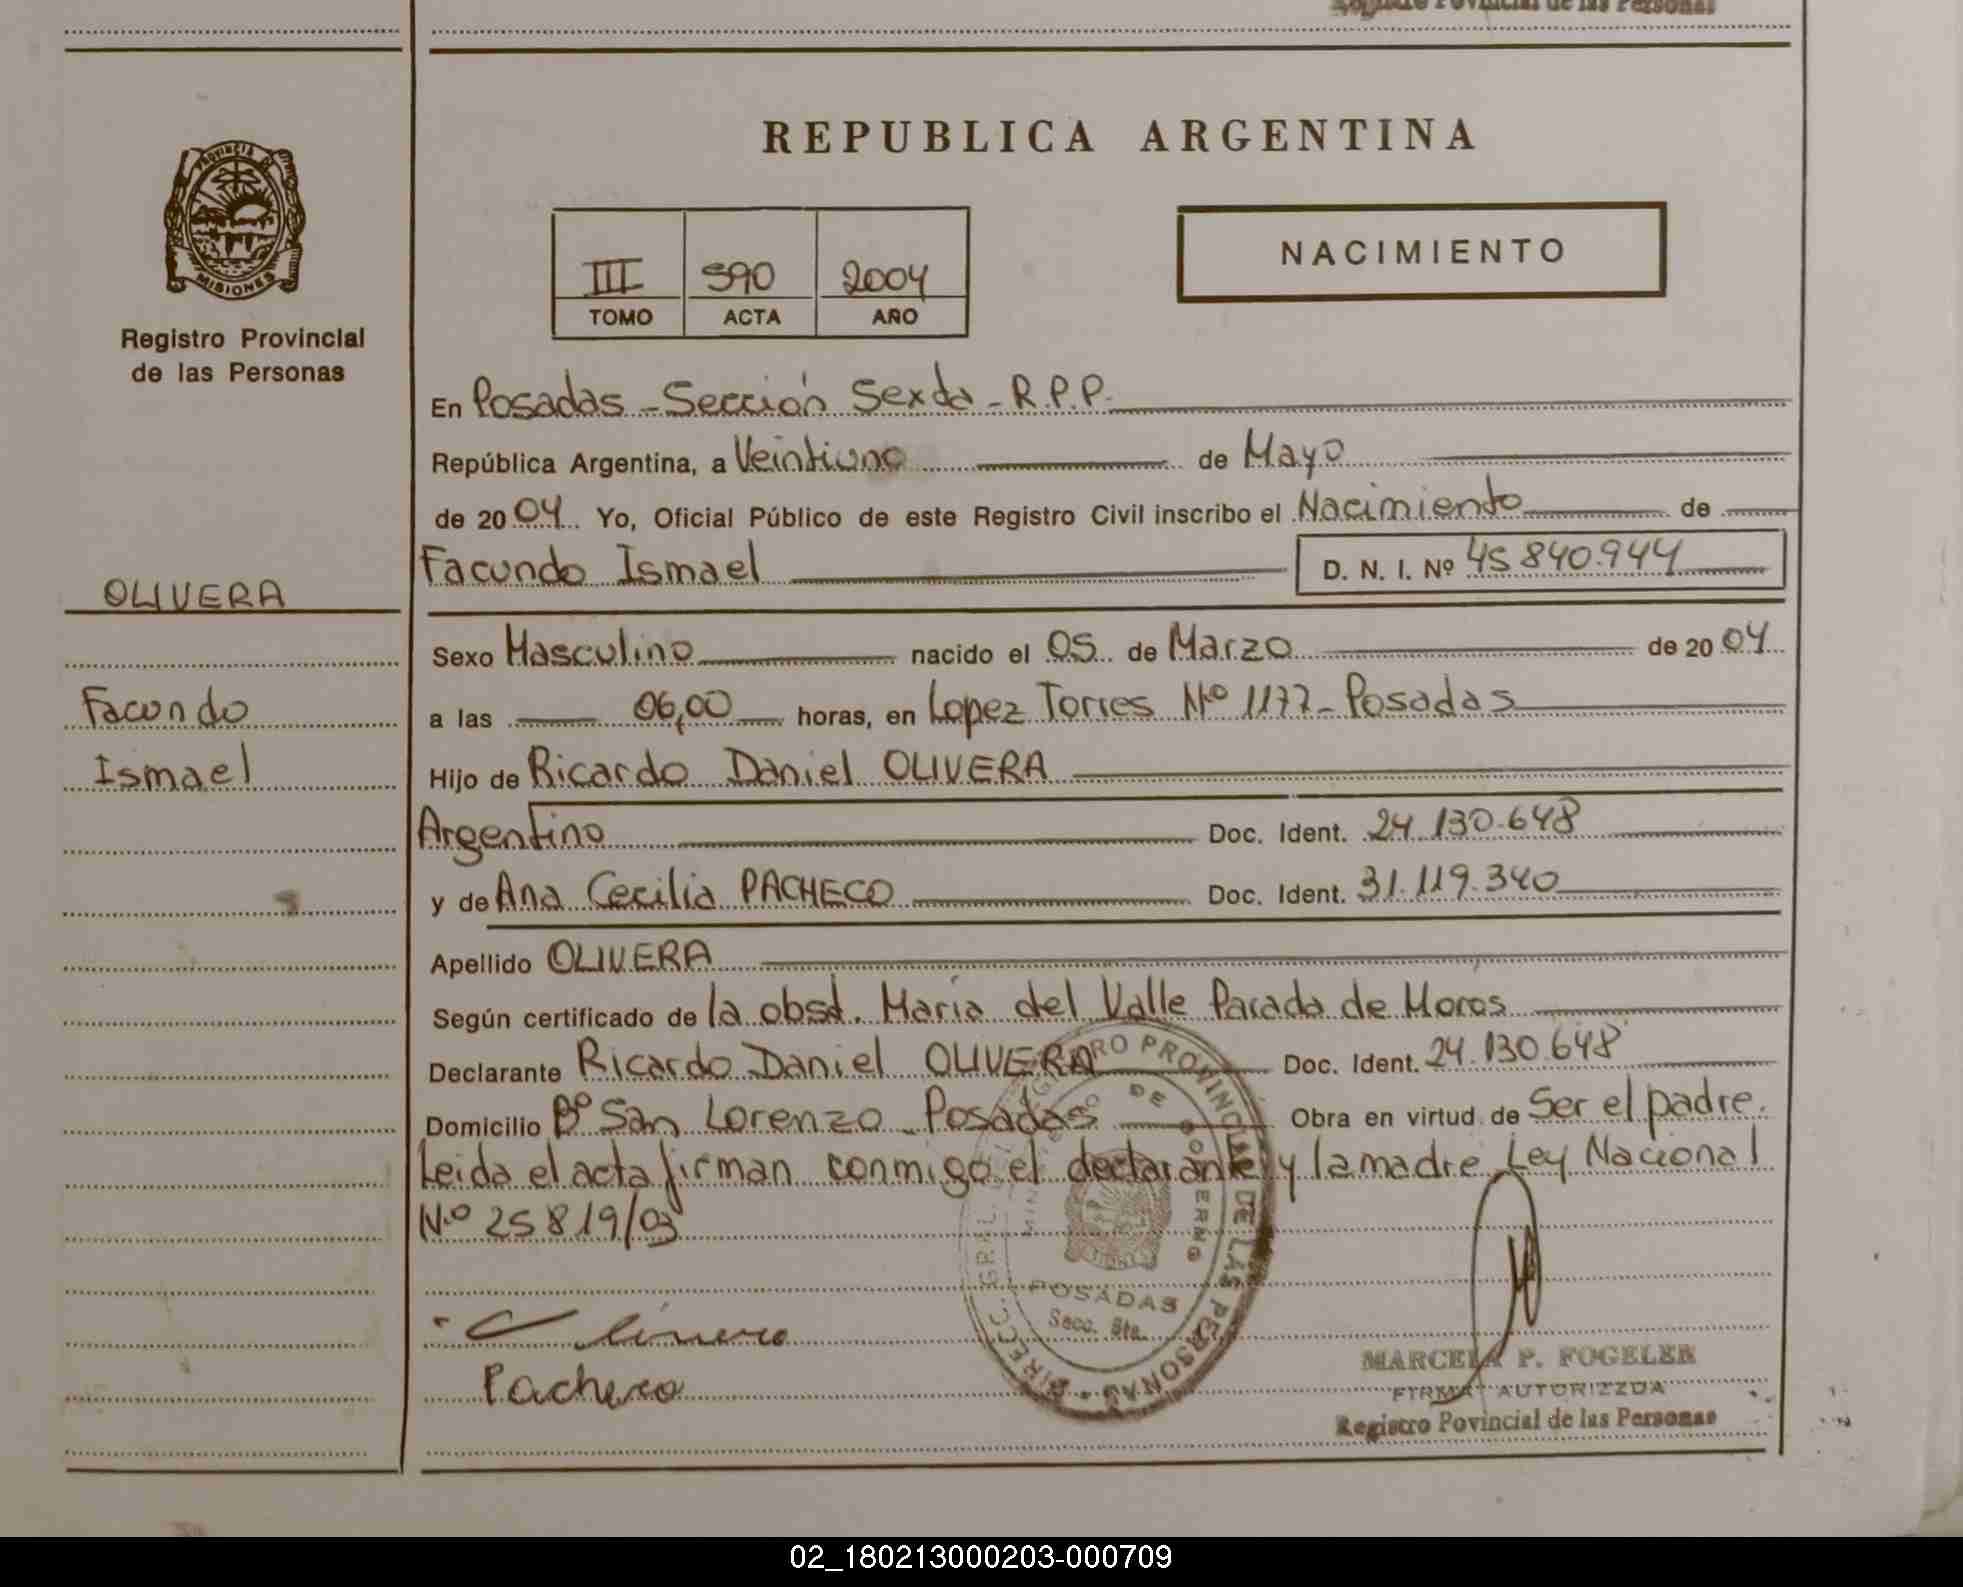 Registro Povincial de las Personas
REPUBLICA ARGENTINA
PROVINCIA DE
MISIONES
Registro Provincial
de las Personas
III 590 2004
TOMO ACTA AÑO
NACIMIENTO
En Posadas - Sección Sexta - R.P.P.
República Argentina, a Veintiuno de Mayo
de 2004 Yo, Oficial Público de este Registro Civil inscribo el Nacimiento de
Facundo Ismael D. N. I. Nº 45840.944
OLIVERA
Sexo Masculino nacido el 05 de Marzo de 2004
Facundo
a las 06,00 horas, en Lopez Torres Nº 1177 - Posadas
Ismael
Hijo de Ricardo Daniel OLIVERA
Argentino Doc. Ident. 24.130.648
y de Ana Cecilia PACHECO Doc. Ident. 31.119.340
Apellido OLIVERA
Según certificado de la obst. María del Valle Parada de Moros
Declarante Ricardo Daniel OLIVERA Doc. Ident. 24.130.648
Domicilio Bº San Lorenzo - Posadas Obra en virtud de Ser el padre.
Leida el acta firman conmigo el declarante y la madre Ley Nacional
Nº 25819/03
DIRECC. GRAL. DEL REGISTRO PROVINCIAL DE LAS PERSONAS
MINISTERIO DE GOBIERNO
POSADAS
Secc. 6ta.
Pacheco
MARCELA P. FOGELER
FIRMA AUTORIZZDA
Registro Povincial de las Personas
02_180213000203-000709